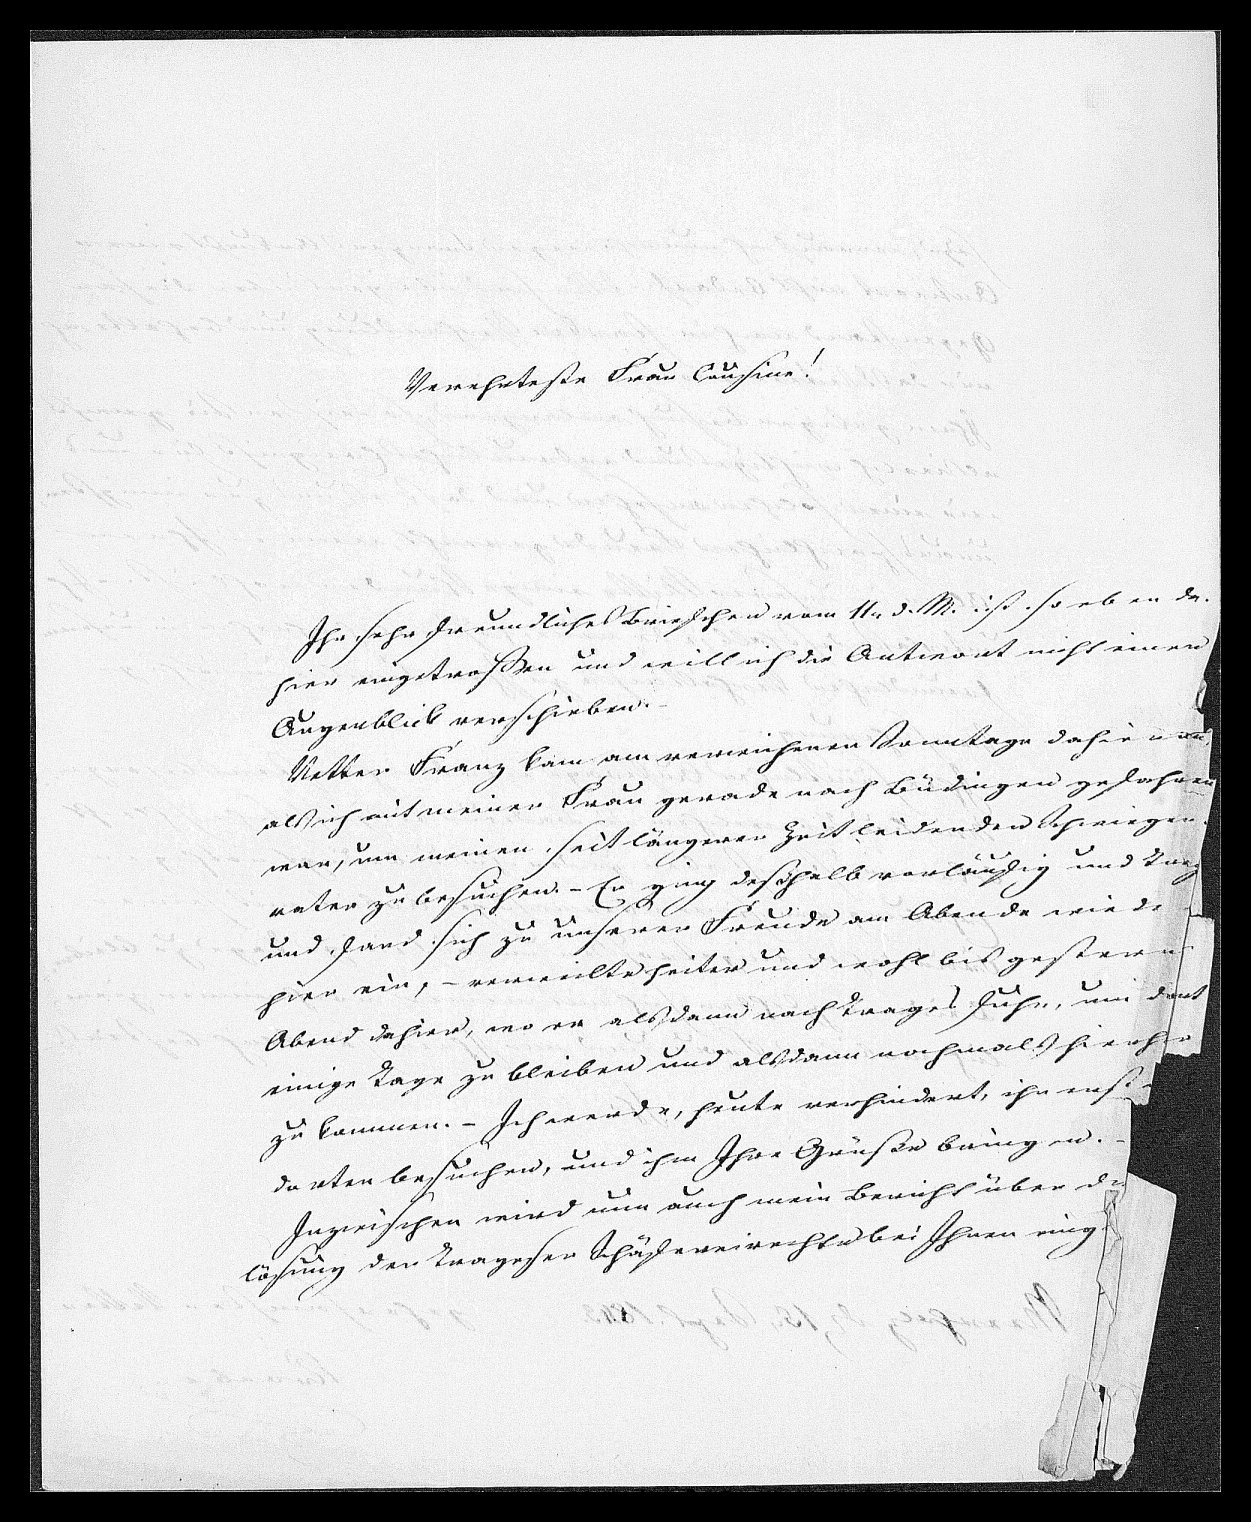 Verehrteste Frau Cousine!
Ihr sehr freundliches Briefchen vom 11n d. M. ist so eben da-
hier eingetroffen und will ich die Antwort nicht einen
Augenblick verschieben. -
Vetter Franz kam am verwichenen Sonntage dahier an,
als ich mit meiner Frau gerade nach Büdingen gefahren
war, um meinen seit längerer Zeit leidenden Schwieger-
vater zu besuchen. - Er ging deßhalb vorläufig
und fand sich zu unserer Freude am Abende wieder
hier ein, - verweilte heiter und wohl bis gestern
Abend dahier, wo er alsdann nach Trages fuhr, um dort
einige Tage zu bleiben und alsdann nochmals hierher
zu kommen. - Ich werde, heute verhindert, ihn erst
dorten besuchen, und ihm Ihre Grüße bringen. -
Inzwischen wird nun auch mein Bericht über
lösung der Trageser Schäfereirechte bei Ihnen